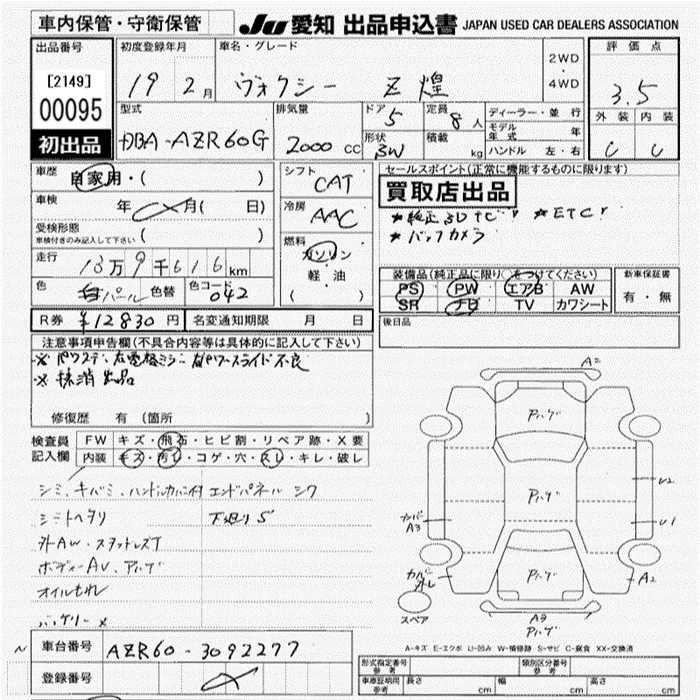 車内保管・守衛保管
JU 愛知 出品申込書 JAPAN USED CAR DEALERS ASSOCIATION
出品番号
[2149]
00095
初出品
初度登録年月
19 2月
車名・グレード
ヴォクシー Z 煌
2WD
・
4WD
評価点
3.5
外装 内装
C C
型式
DBA-AZR60G
排気量
2000 CC
ドア
5
定員
8人
形状
3W
積載
kg
ディーラー・並行
モデル年式 年
ハンドル 左・右
車歴
自家用・( )
車検
年 月( 日)
受検形態
車検付きのみ記入して下さい ( )
走行
13万9千616km
色
白パール
色替
色コード
042
シフト
CAT
冷房
AAC
燃料
ガソリン
軽・油
( )
セールスポイント(正常に機能するものに限ります)
買取店出品
★純正 ★ETC
★バックカメラ
装備品(純正品に限り をつけてください)
PS PW エアB AW
SR ナビ TV カワシート
新車保証書
有・無
R券 ¥12830円
名変通知期限 月 日
後日品
注意事項申告欄(不具合内容等は具体的に記入して下さい)
※パワステ、左電格ミラー 右パワースライド不良
※抹消出品
修復歴 有(箇所 )
検査員
記入欄
FW キズ・飛石・ヒビ割・リペア跡・X要
内装 キズ・汚レ・コゲ・穴・スレ・キレ・破レ
シミ、キバミ、ハンドルカバー付 エンドパネル シワ
シートヘタリ 下廻りS
外AW、スタッドレスT
ボディーAU、アハゲ
オイルもれ
バッテリー×
A2
アハゲ
アハゲ
アハゲ
U2
U1
カバー
A3
カバー
外レ
A2
スペア
A3
アハゲ
A-キズ E-エクボ U-凹み W-補修跡 S-サビ C-腐食 XX-交換済
車台番号
AZR60-3092277
登録番号
型式指定番号
参考
類別区分番号
参考
車庫証明用
参考
長さ cm 幅 cm 高さ cm